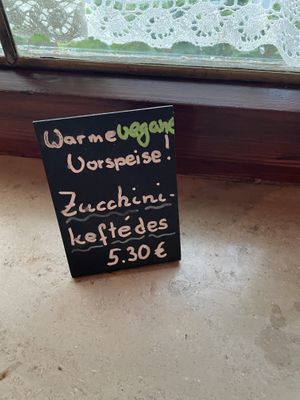 Warme vegane
Vorspeise!
Zucchini-
keftédes
5.30 €